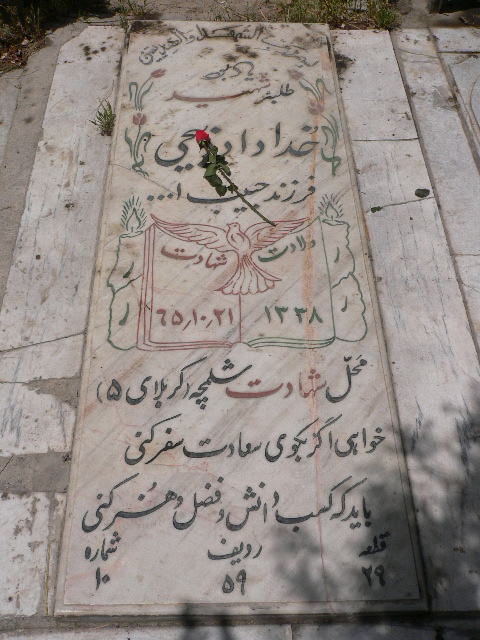 طلبه شهید
خداداد
فرزند حبیب ا...
ولادت شهادت
۱۳۳۸ ۶۵٫۱۰٫۲۱
محلّ شهادت شلمچه (کربلای ۵)
خواهی اگر بکوی سعادت سفر کنی
باید که کسب دانش و فضل و هنر کنی
قلعه ردیف شماره
۲۹ ۵۹ ۱۰